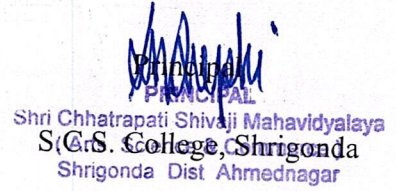 Principal
PRINCIPAL
Shri Chhatrapati Shivaji Mahavidyalaya
S.C.S. College, Shrigonda
(Arts, Science & Commerce)
Shrigonda Dist Ahmednagar